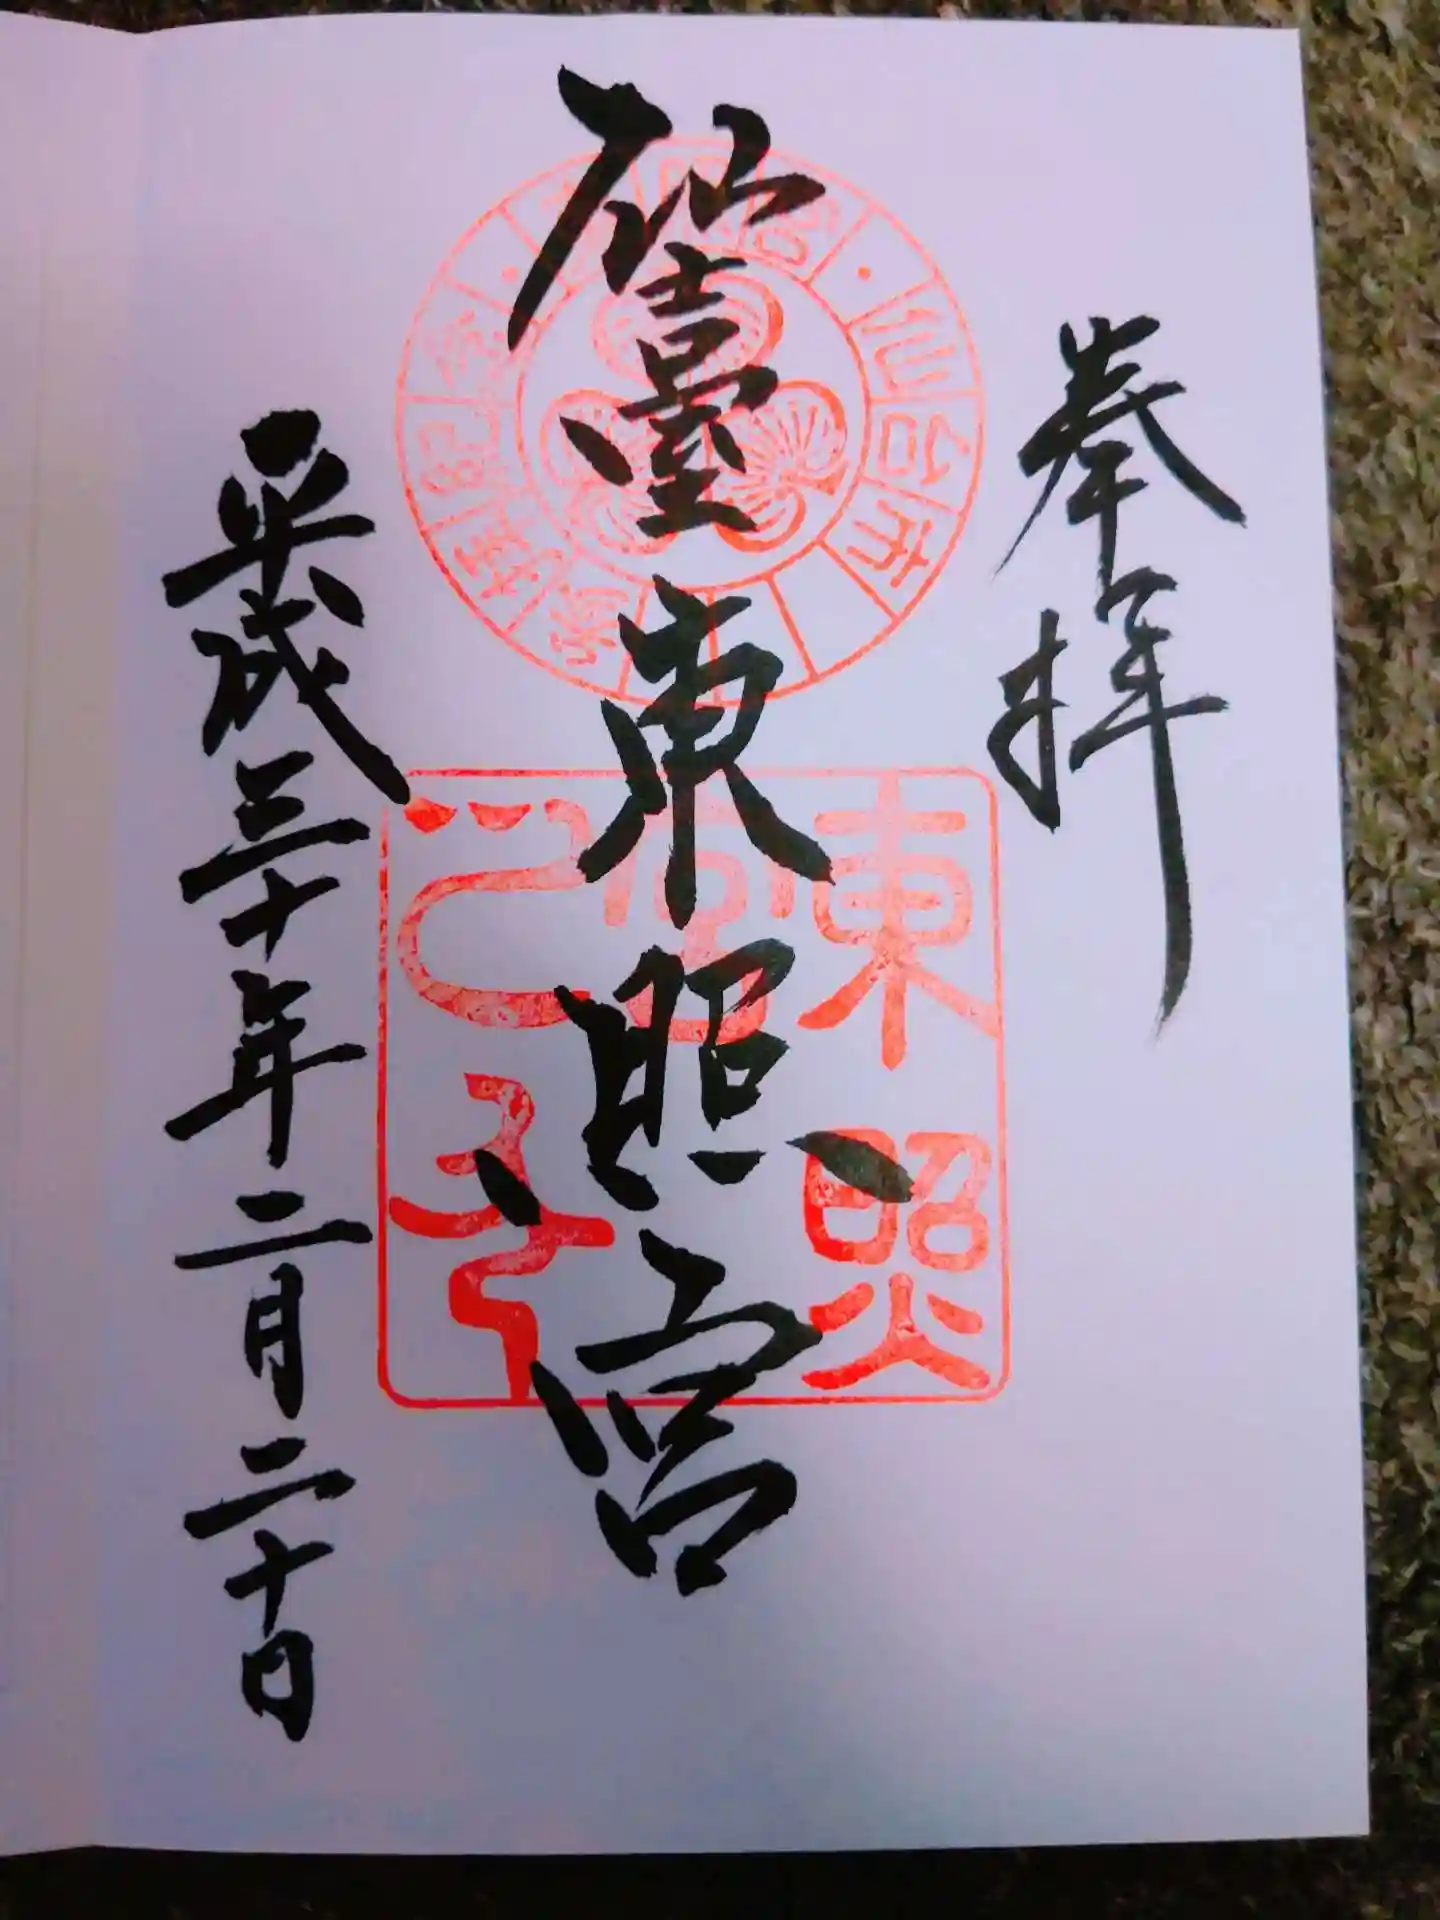 奉拝
仙臺東照宮
平成三十年二月二十日
仙台市
東照
宮